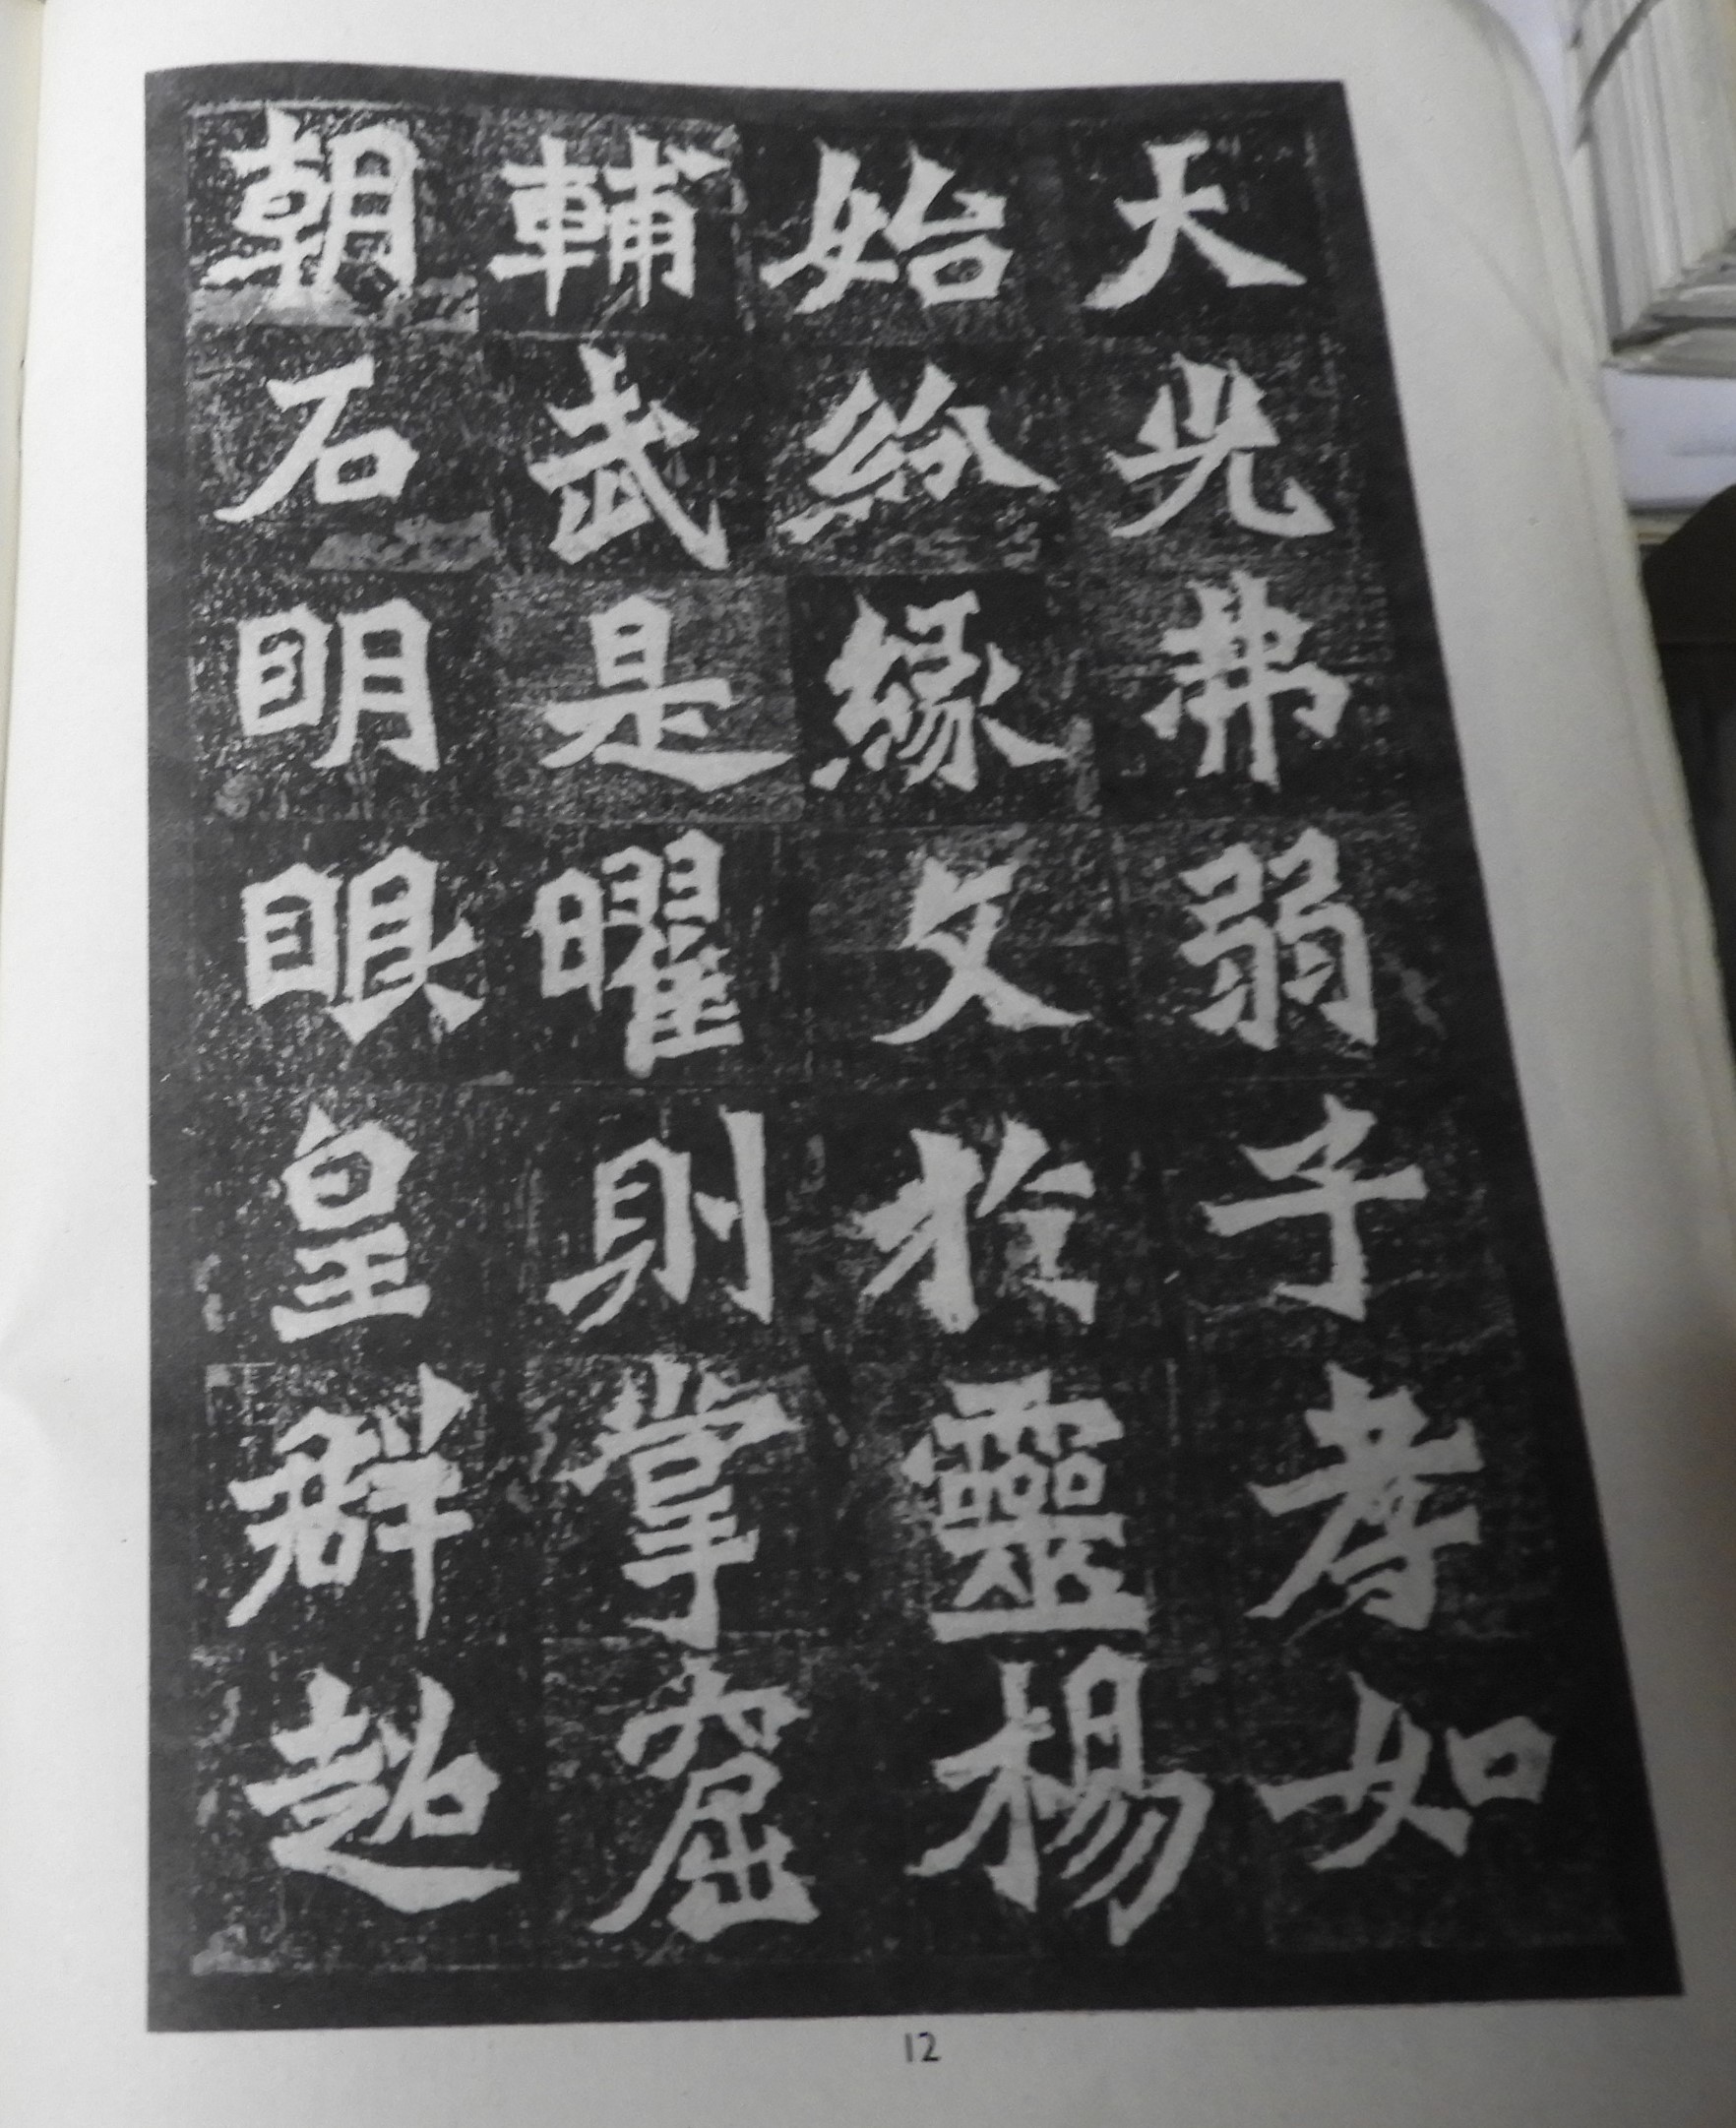 天光弗弱子孝如
始紛緣文於靈楊
輔武是曜則掌窟
朝石明眼皇群超
12